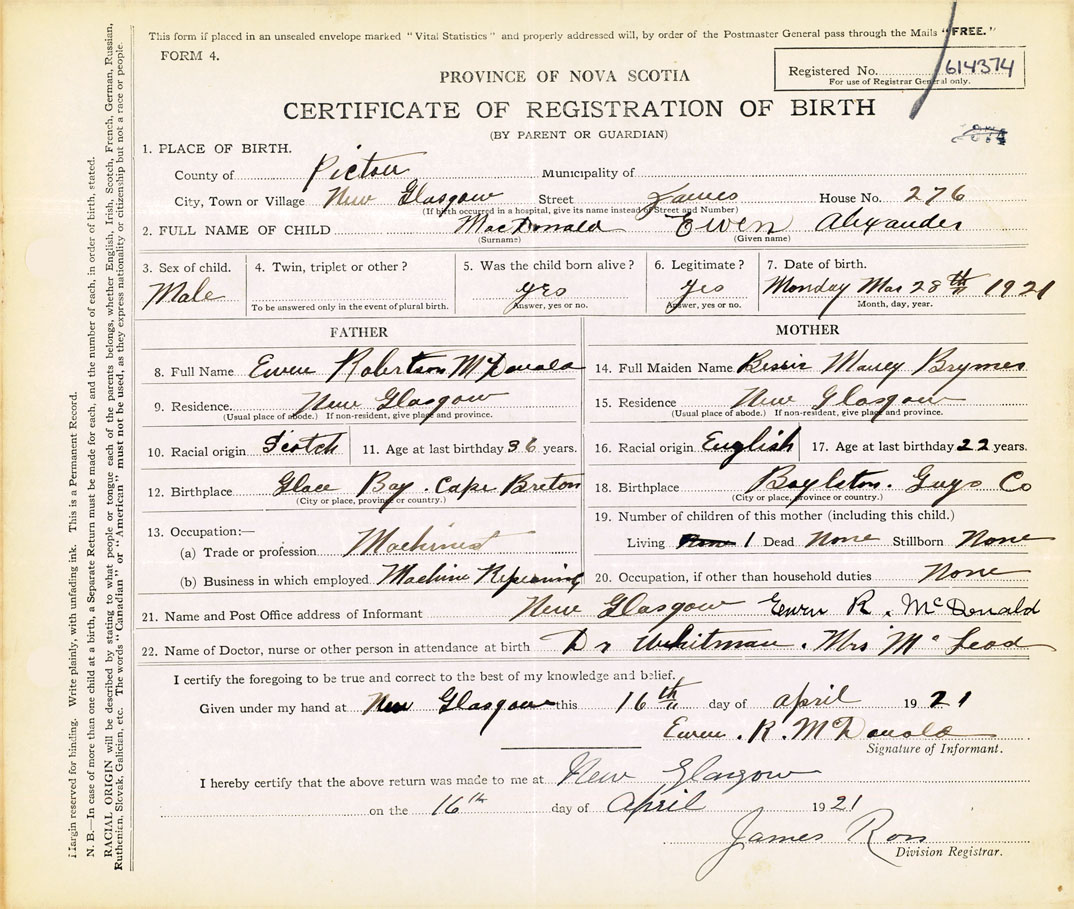 This form if placed in an unsealed envelope marked "Vital Statistics" and properly addressed will, by order of the Postmaster General pass through the Mails "FREE."
FORM 4.
Registered No. 614374
For use of Registrar General only.
PROVINCE OF NOVA SCOTIA
CERTIFICATE OF REGISTRATION OF BIRTH
(BY PARENT OR GUARDIAN)
1. PLACE OF BIRTH.
County of Pictou Municipality of
City, Town or Village New Glasgow Street James House No. 276
(If birth occurred in a hospital, give its name instead of Street and Number)
2. FULL NAME OF CHILD MacDonald Ewen Alexander
(Surname) (Given name)
3. Sex of child. 4. Twin, triplet or other? 5. Was the child born alive? 6. Legitimate? 7. Date of birth.
Male yes yes Monday Mar 28th 1921
To be answered only in the event of plural birth. Answer, yes or no. Answer, yes or no. Month, day, year.
FATHER MOTHER
8. Full Name Ewen Robertson McDonald 14. Full Maiden Name Bessie
9. Residence. New Glasgow 15. Residence New Glasgow
(Usual place of abode.) If non-resident, give place and province. (Usual place of abode.) If non-resident, give place and province.
10. Racial origin Scotch 11. Age at last birthday 36 years. 16. Racial origin English 17. Age at last birthday 22 years.
12. Birthplace Glace Bay. Cape Breton 18. Birthplace Boylston. Guys Co
(City or place, province or country.) (City or place, province or country.)
13. Occupation:— 19. Number of children of this mother (including this child.)
(a) Trade or profession Machinest Living 1 Dead None Stillborn None
(b) Business in which employed Machine Repairing 20. Occupation, if other than household duties None
21. Name and Post Office address of Informant New Glasgow Ewen R. McDonald
22. Name of Doctor, nurse or other person in attendance at birth Dr Whitman. Mrs McLeod
I certify the foregoing to be true and correct to the best of my knowledge and belief.
Given under my hand at New Glasgow this 16th day of april 1921
Ewen. R. McDonald
Signature of Informant.
I hereby certify that the above return was made to me at New Glasgow
on the 16th day of April 1921
James Ross
Division Registrar.
Margin reserved for binding. Write plainly, with unfading ink. This is a Permanent Record.
N. B.—In case of more than one child at a birth, a Separate Return must be made for each, and the number of each, in order of birth, stated.
RACIAL ORIGIN will be described by stating to what people or tongue each of the parents belongs, whether English, Irish, Scotch, French, German, Russian,
Ruthenian, Slovak, Galician, etc. The words "Canadian" or "American" must not be used, as they express nationality or citizenship but not a race or people.